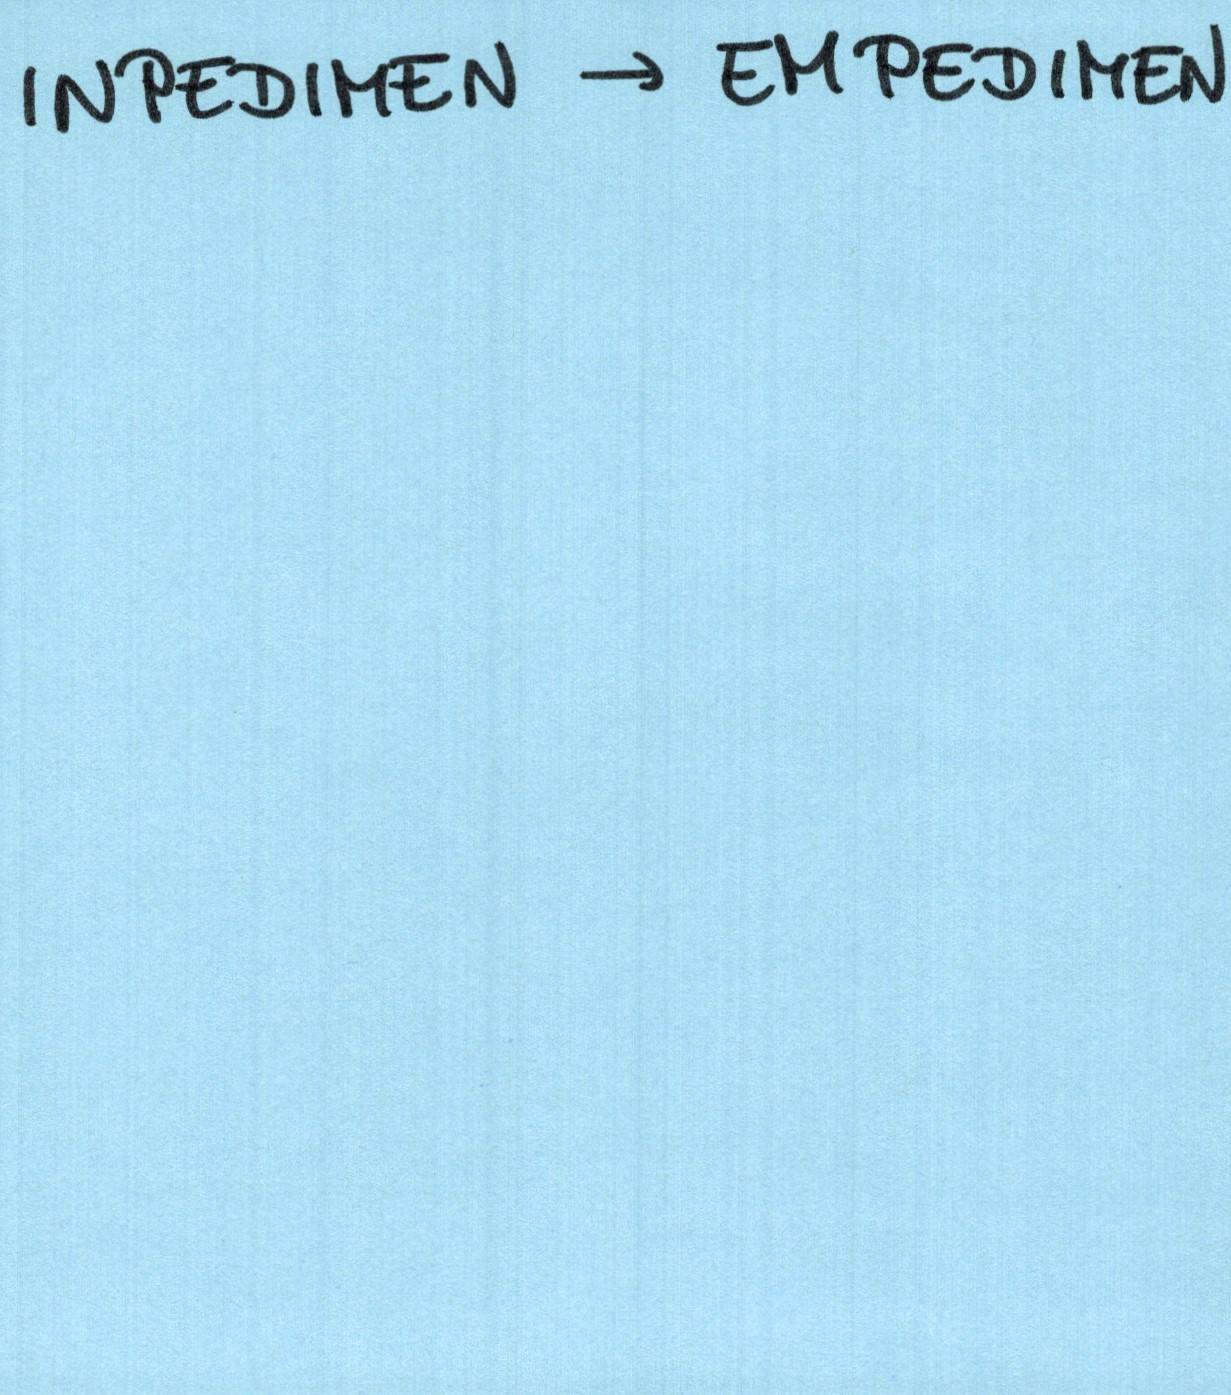 INPEDIMEN → EMPEDIMEN